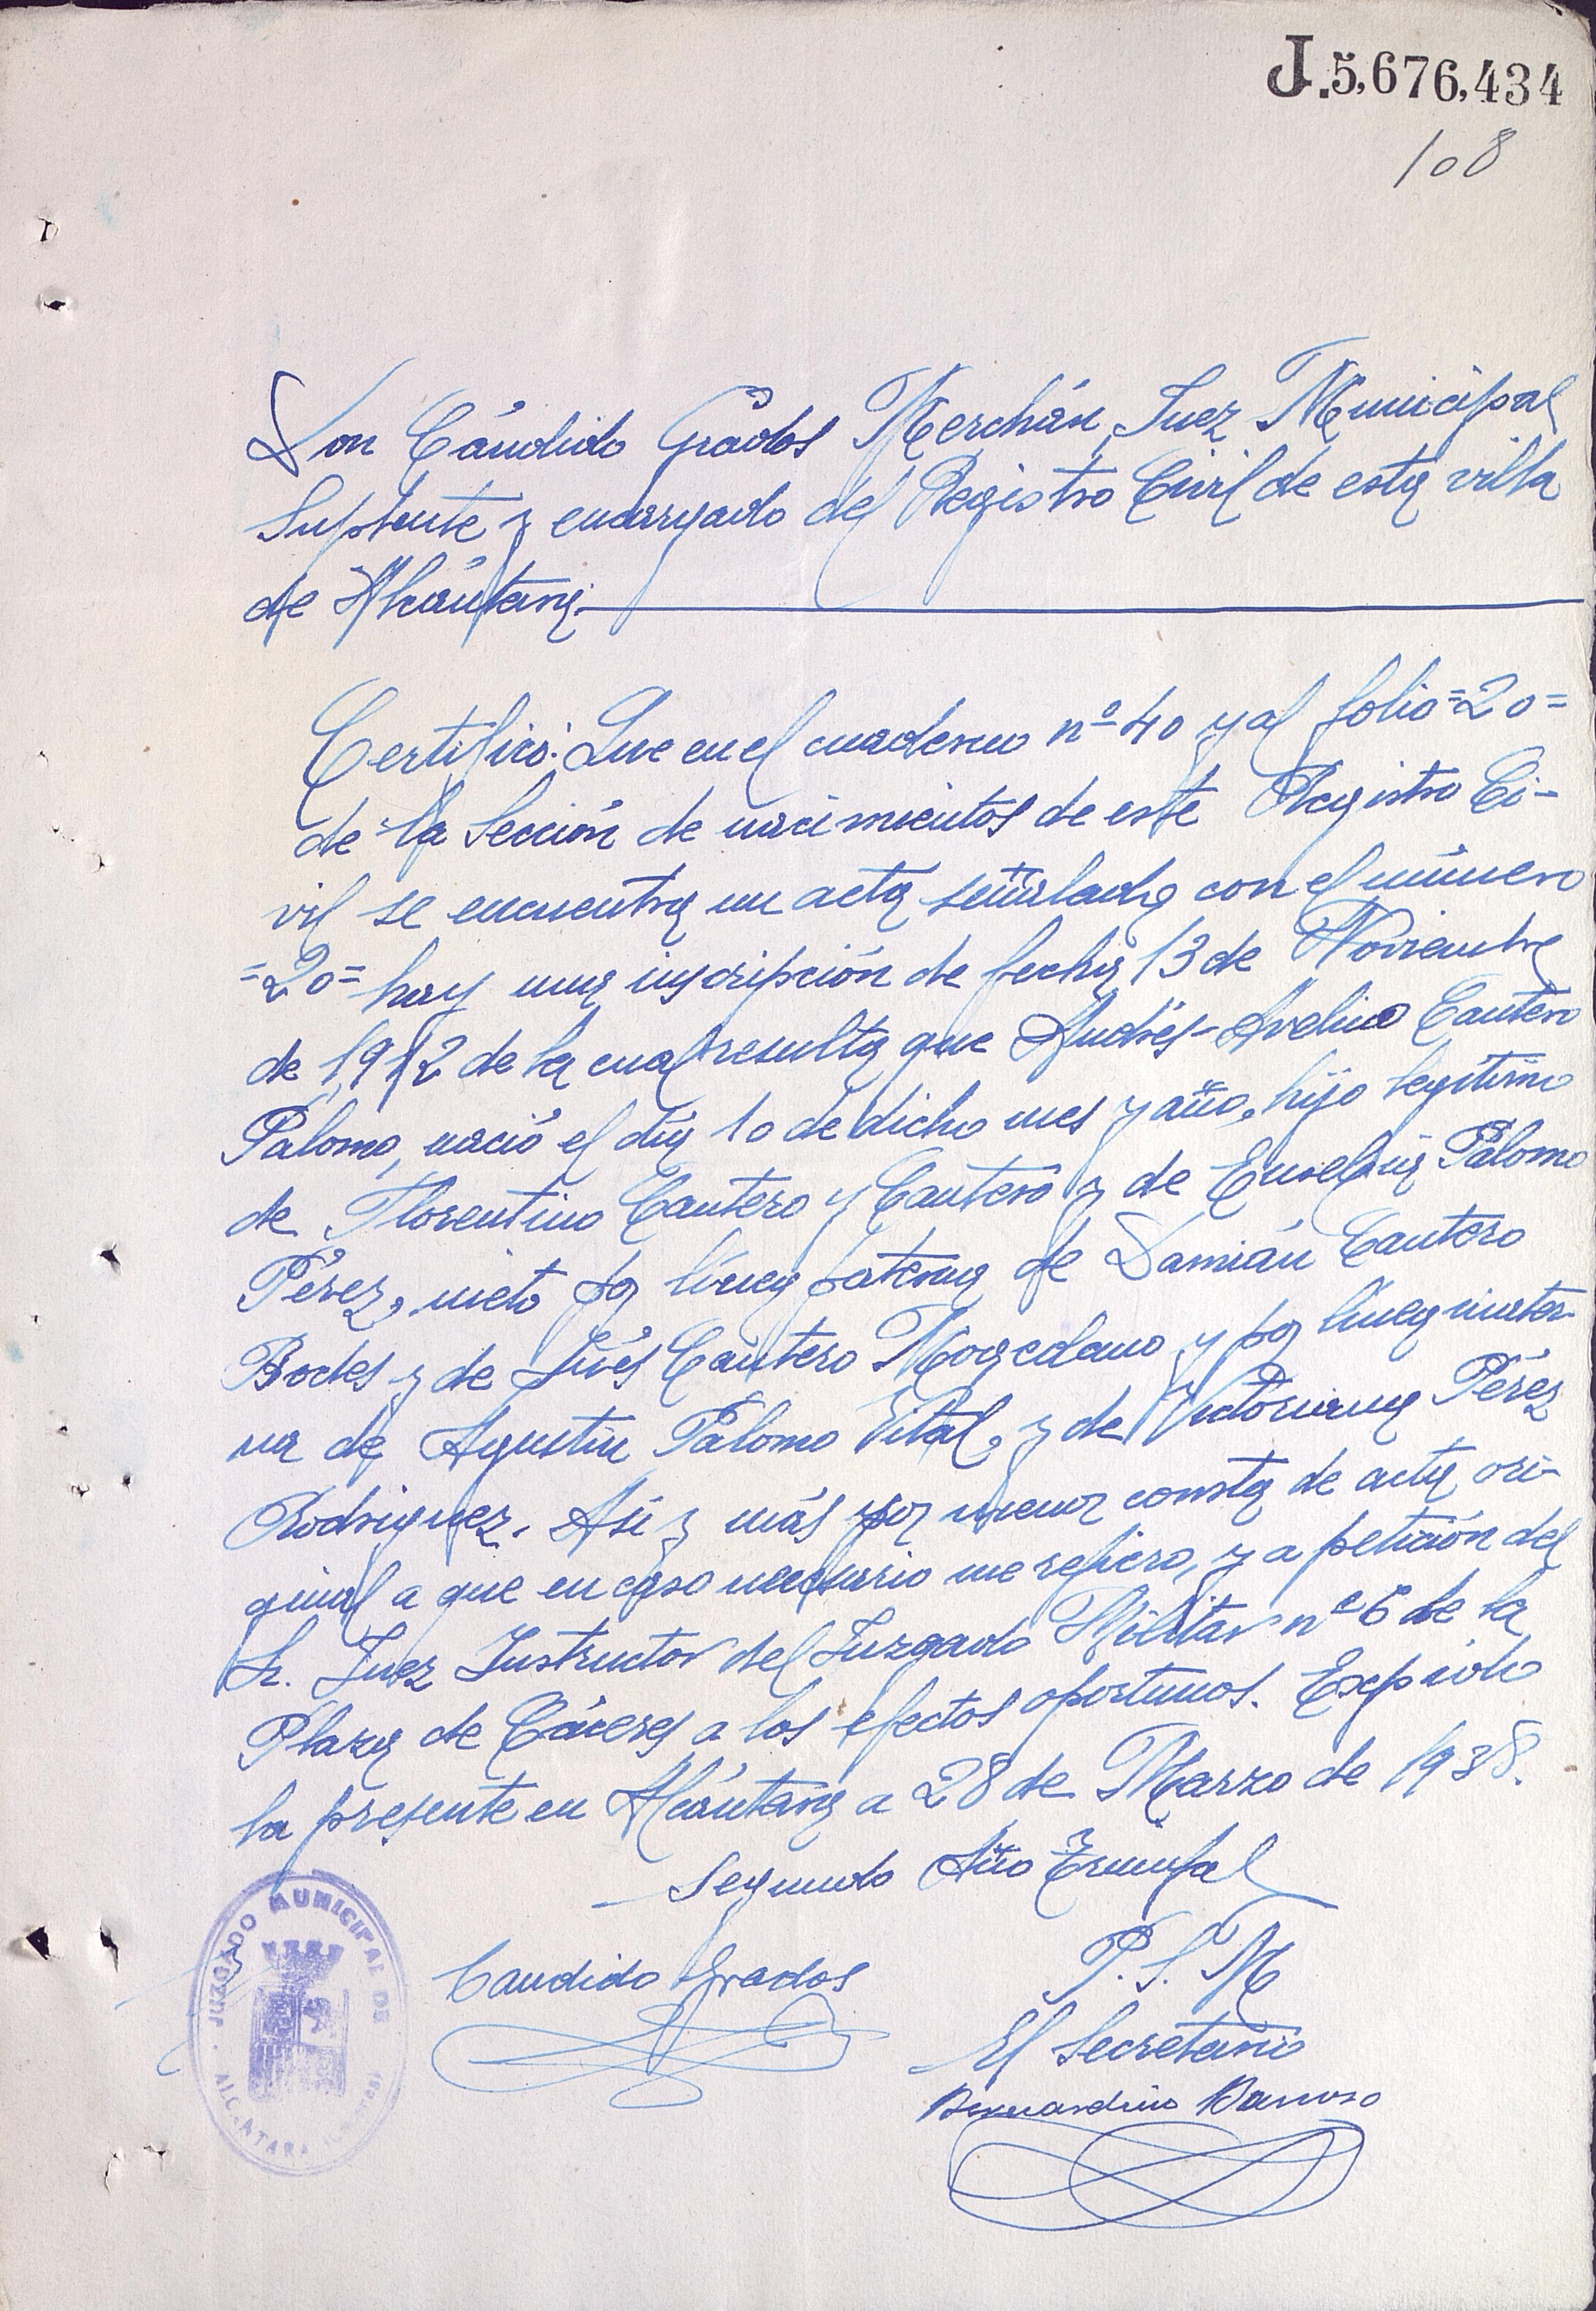 J.5,676,434
108
Don Cándido Grados Merchán, Juez Municipal
Suplente y encargado del Registro Civil de esta villa
de Alcántara.
Certifico: Que en el cuaderno nº 40 y al folio =20=
de la Sección de nacimientos de este Registro Ci-
vil se encuentra un acta señalada con el número
=20= hay una inscripción de fecha 13 de Noviembre
de 1,912 de la cual resulta que Andrés-Avelino Cantero
Palomo, nació el día 10 de dicho mes y año, hijo legítimo
de Florentino Cantero y Cantero y de Eusebia Palomo
Pérez, nieto por línea paterna de Damián Cantero
y de Inés Cantero y por línea mater-
na de Agustín Palomo Vital, y de Victoriana Pérez
Rodriguez. Así y más por menor consta de acta ori-
ginal a que en caso necesario me refiero, y a petición del
Sr. Juez Instructor del Juzgado Militar nº 6 de la
Plaza de Cáceres a los efectos oportunos. Expido
la presente en Alcántara a 28 de Marzo de 1938.
Segundo Año Triunfal
P.S.M
Candido Grados
El Secretario
Bernardino Barroso
JUZGADO MUNICIPAL DE
ALCANTARA